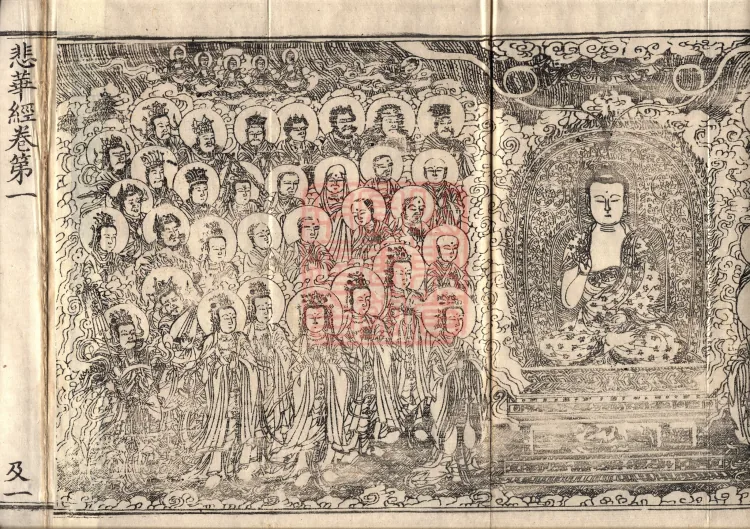 悲華經卷第一
及一